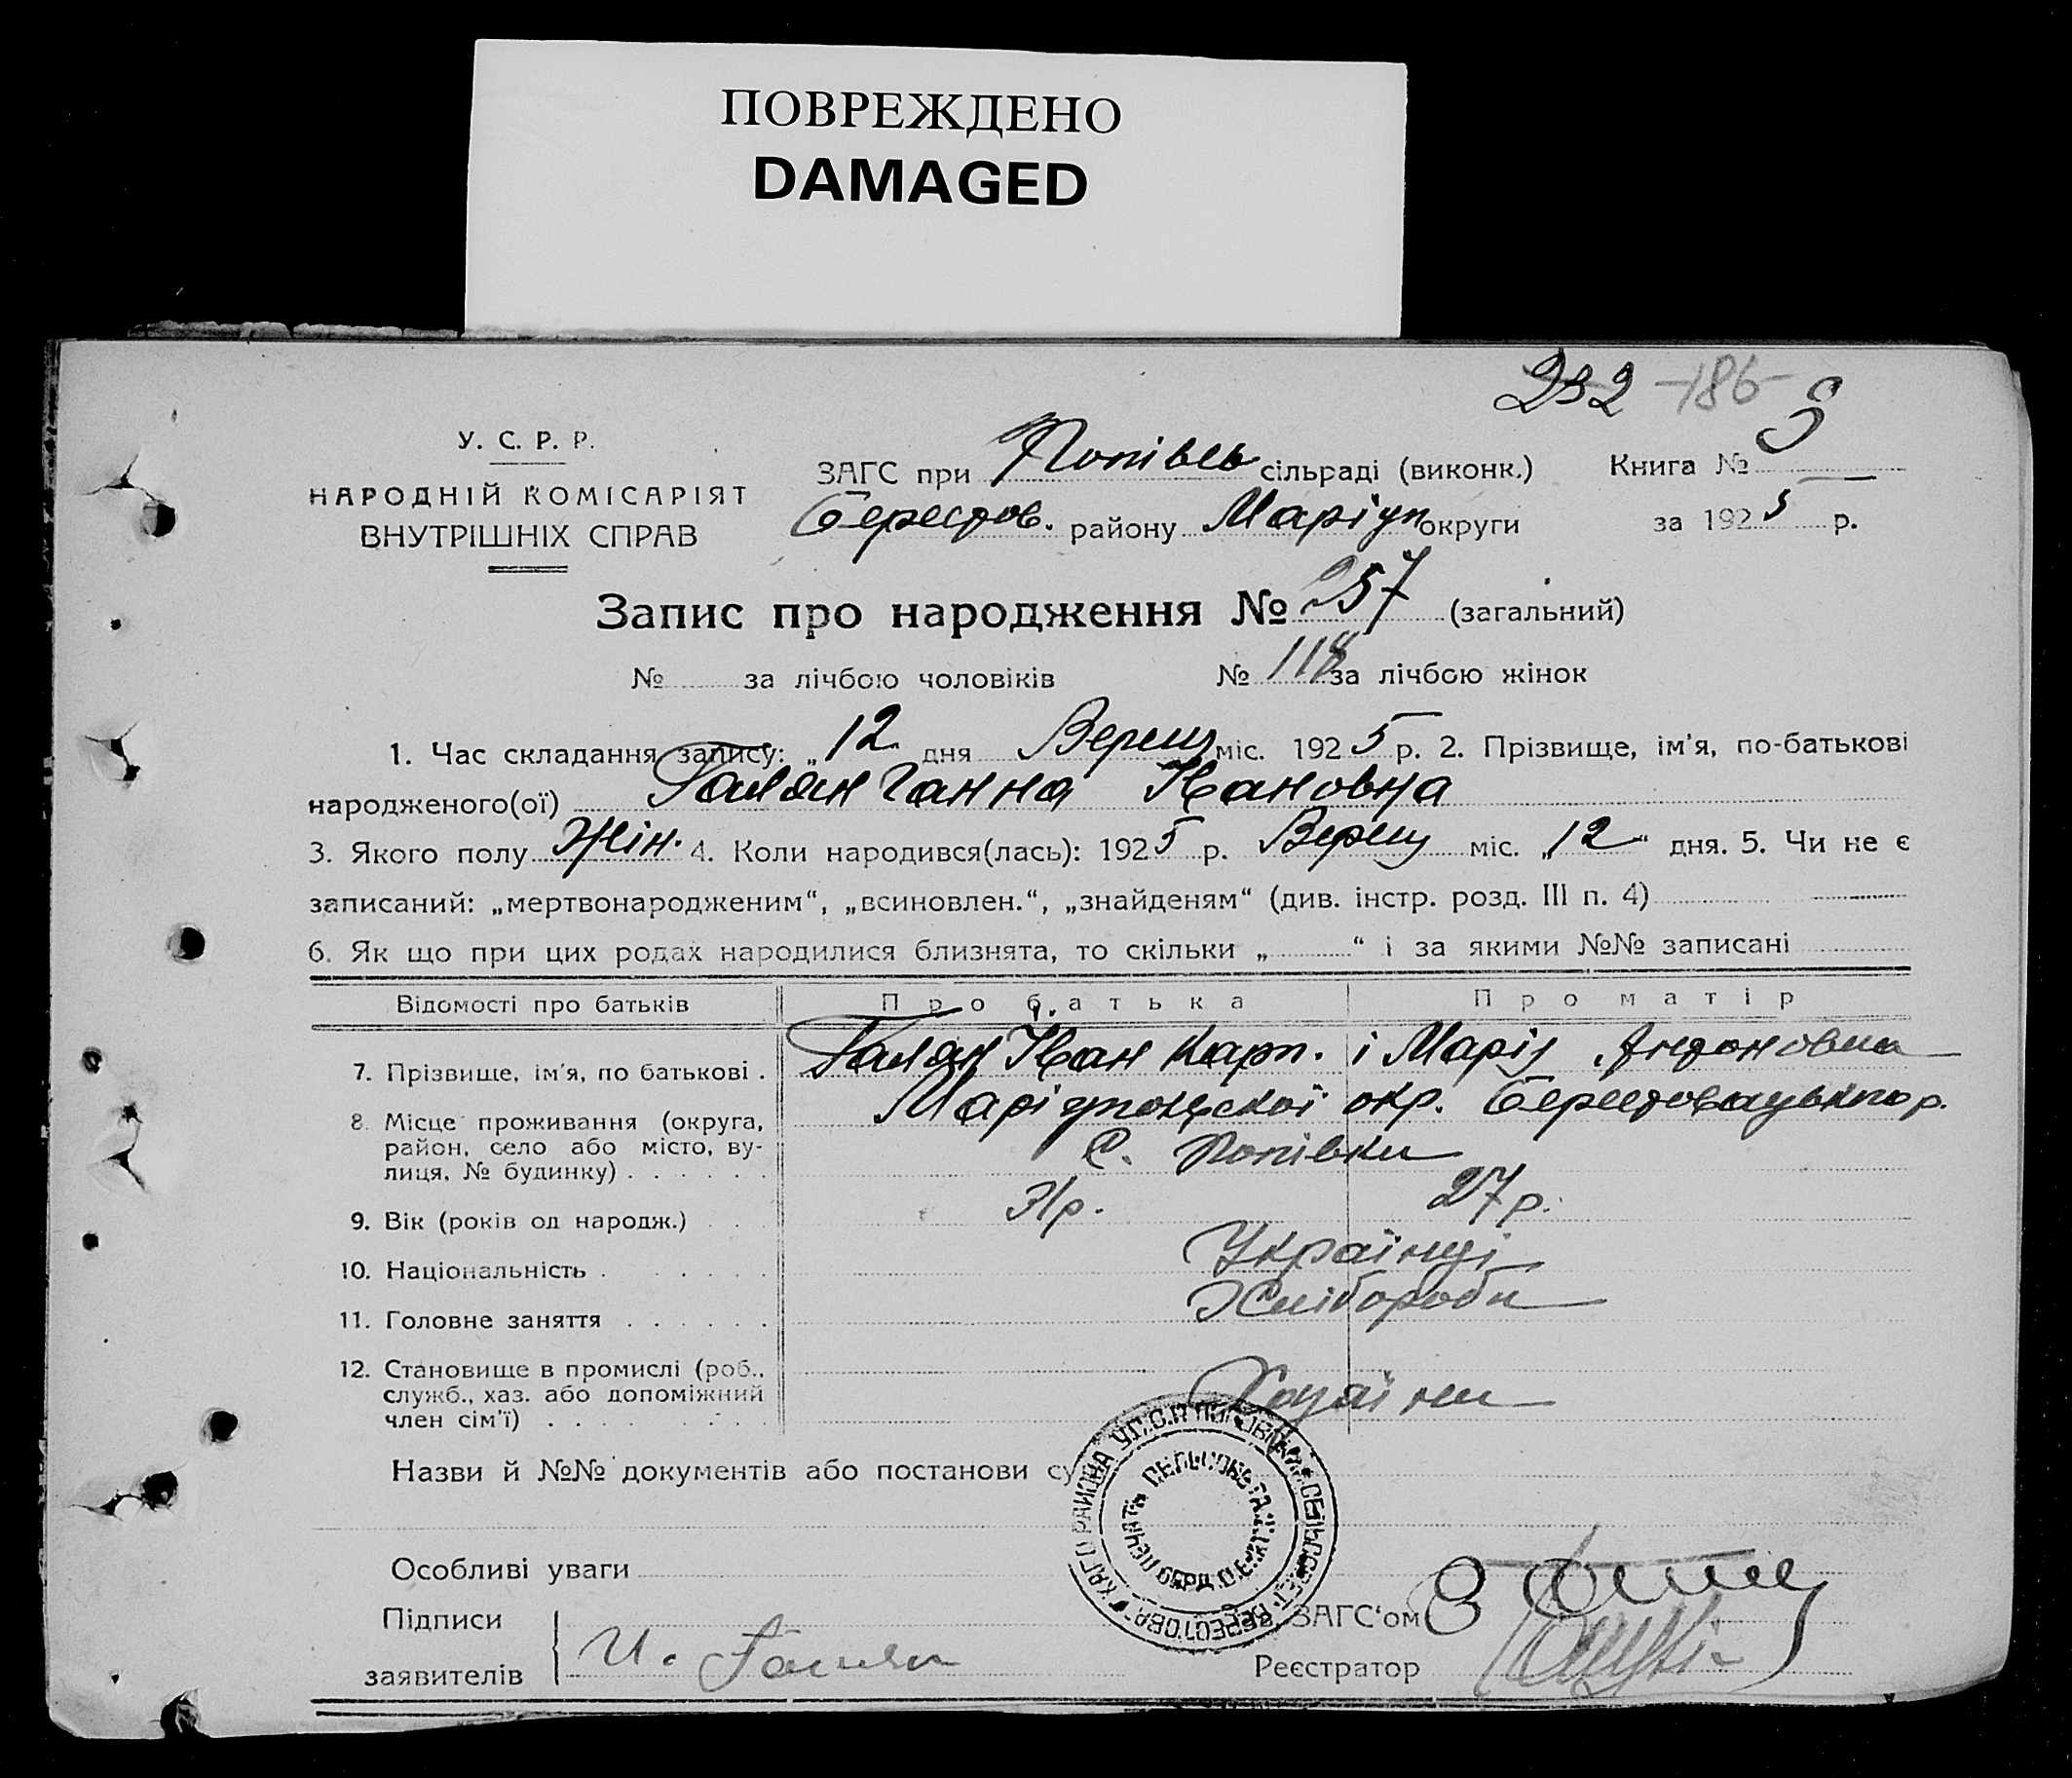 ПОВРЕЖДЕНО
DAMAGED
232 -186-
У. С. Р. Р.
НАРОДНІЙ КОМІСАРІЯТ
ВНУТРІШНІХ СПРАВ
ЗАГС при Попівсь сільраді (виконк.) Книга №
Берестов. району Маріуп округи за 1925 р.
Запис про народження № 257 (загальний)
№ за лічбою чоловіків № 118 за лічбою жінок
1. Час складання запису: „12 дня Верес міс. 1925 р. 2. Прізвище, ім'я, по-батькові
народженого(ої) Галян Ганна Ивановна
3. Якого полу Жін. 4. Коли народився(лась): 1925 р. Верес міс. „12“ дня. 5. Чи не є
записаний: „мертвонародженим“, „всиновлен.“, „знайденям“ (див. інстр. розд. III п. 4)
6. Як що при цих родах народилися близнята, то скільки „ “ і за якими №№ записані
Відомості про батьків Про батька Про матір
7. Прізвище, ім'я, по батькові . Галян Иван Карп. і Марія Антоновна
8. Місце проживання (округа, район, село або місто, вулиця, № будинку) Маріупольської окр. Берестовацького р.
с. Попівки
9. Вік (років од народж.) 31 р. 27 р.
10. Національність Українці
11. Головне заняття Хлібороби
12. Становище в промислі (роб., служб., хаз. або допоміжний член сім'ї) Хазяіни
Назви й №№ документів або постанови су
Особливі уваги
Підписи
заявителів И. Галян
Зав. ЗАГС'ом
Реєстратор